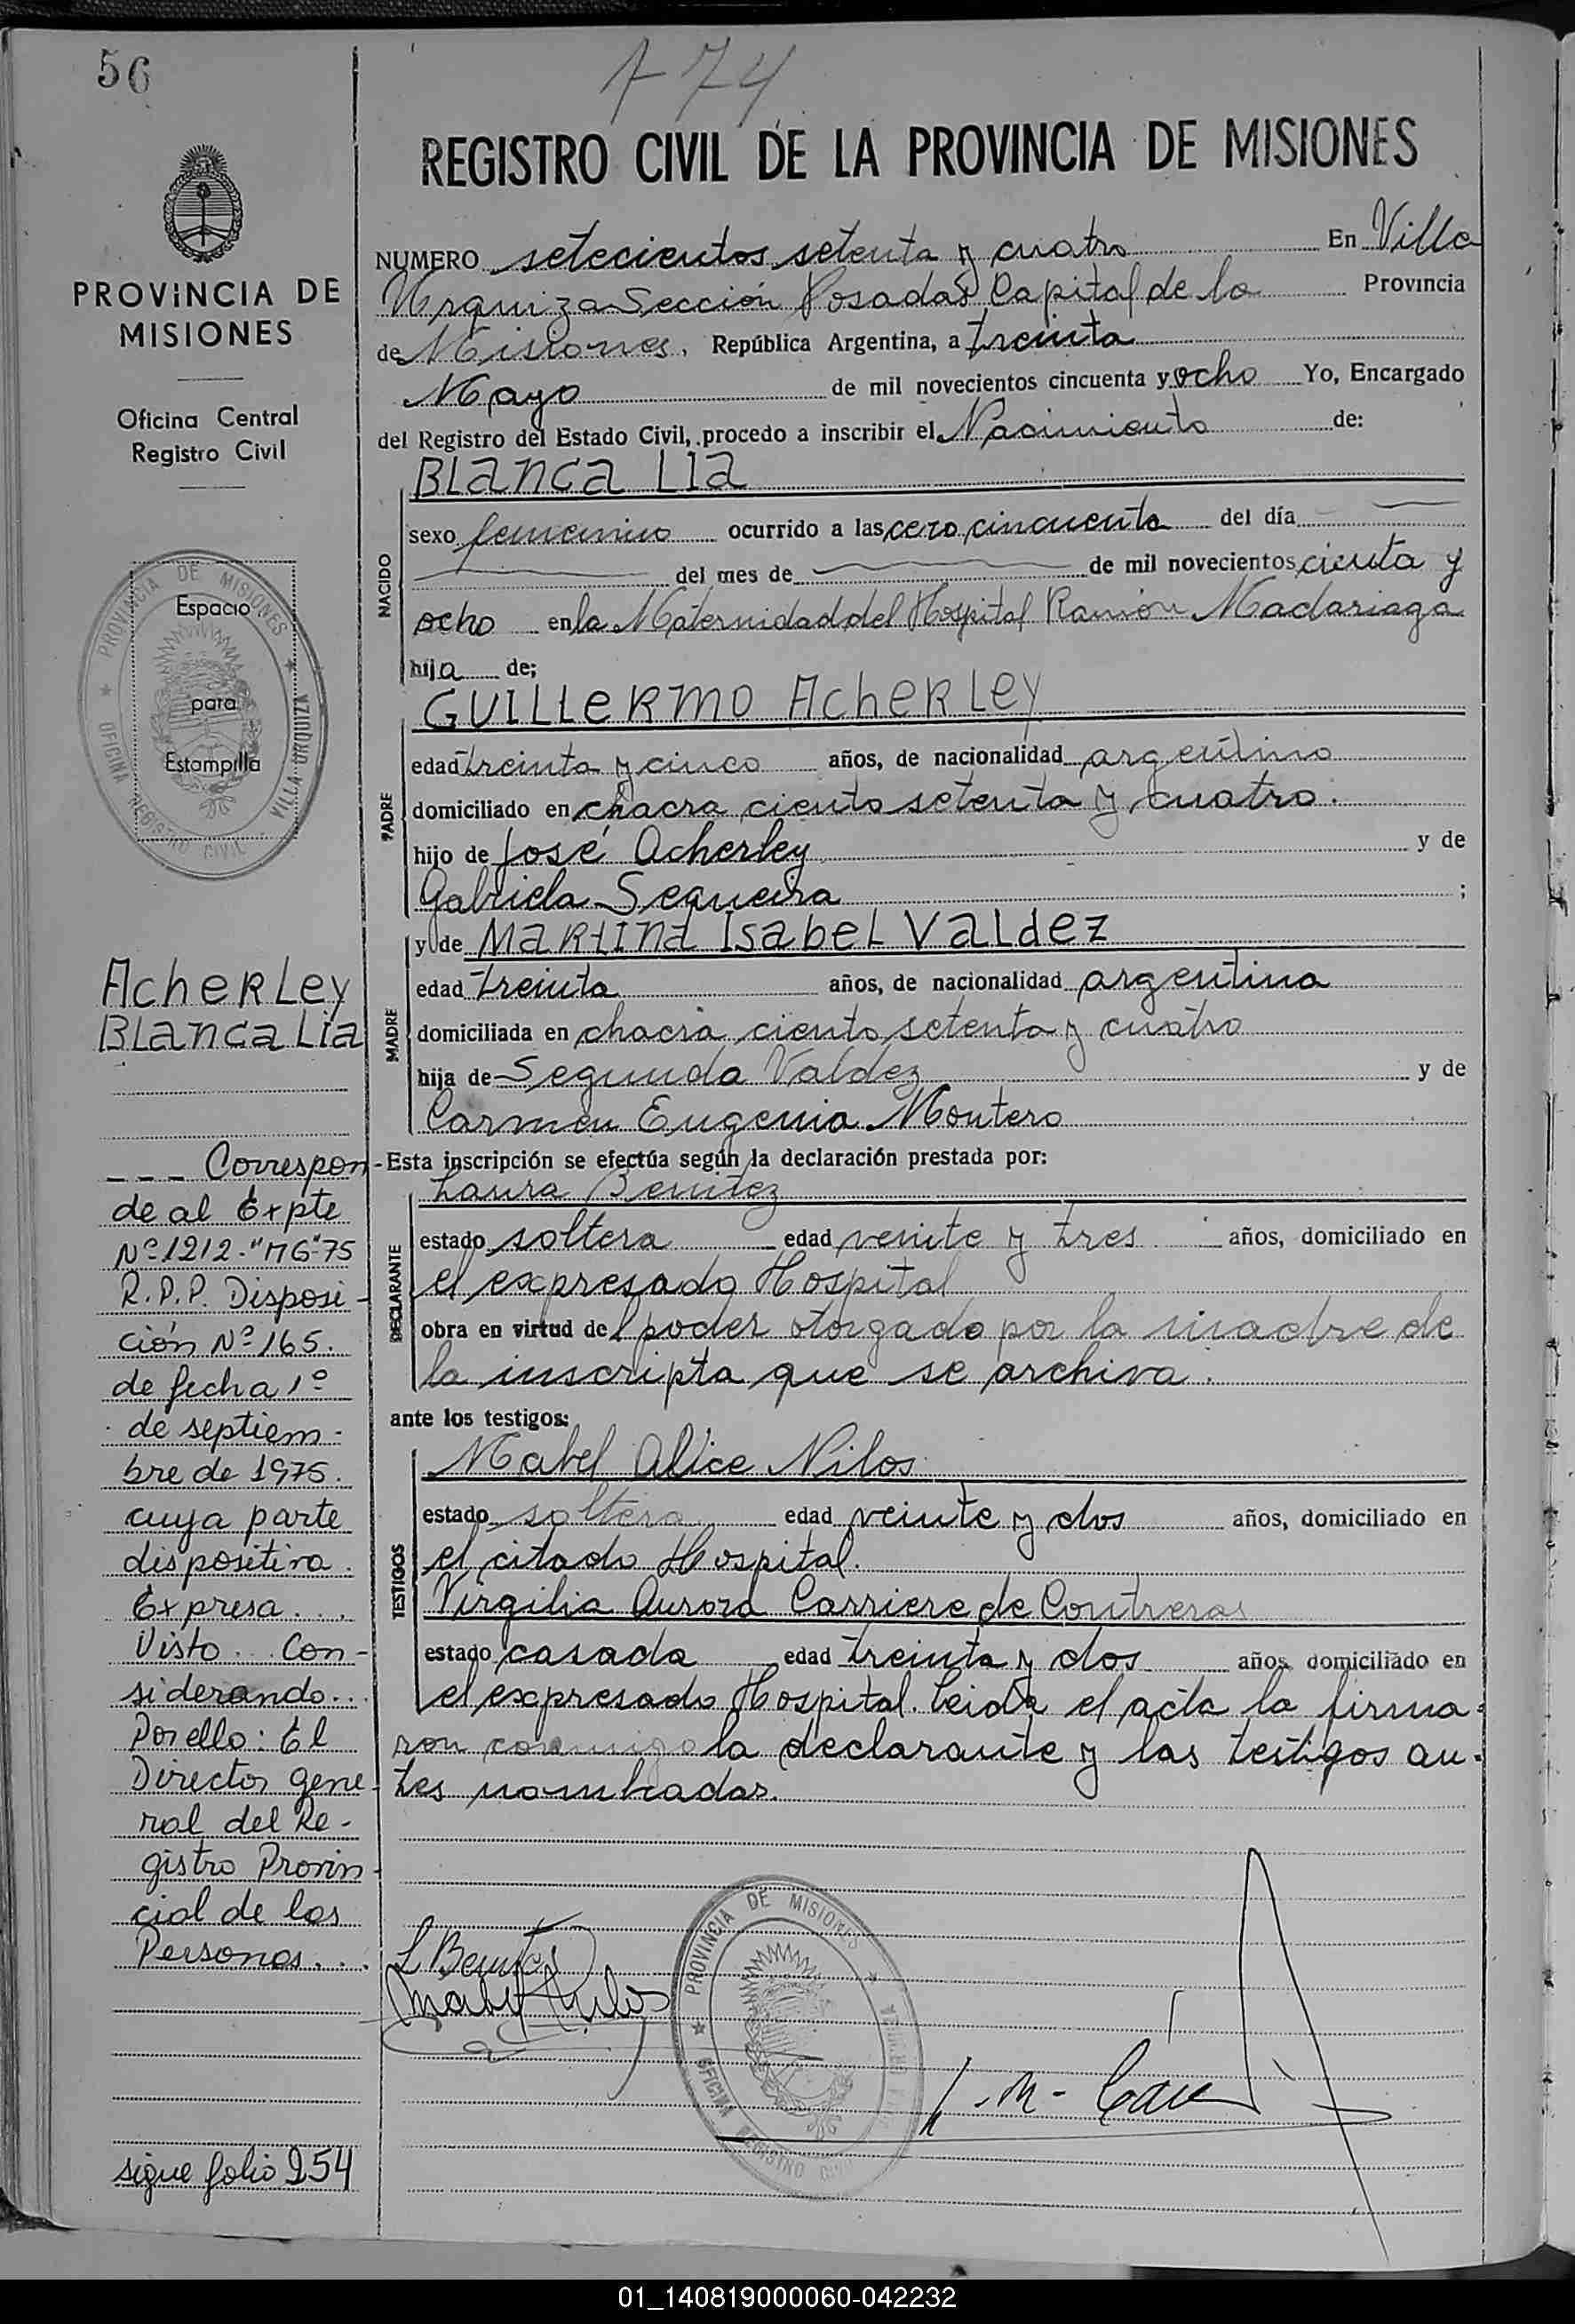 56
774
REGISTRO CIVIL DE LA PROVINCIA DE MISIONES
PROVINCIA DE
MISIONES
Oficina Central
Registro Civil
PROVINCIA DE MISIONES
OFICINA REGISTRO CIVIL VILLA URQUIZA
Espacio
para
Estampilla
Acherley
Blanca Lia
--- Correspon-
de al Expte
Nº 1212-"MG"-75
R.P.P. Disposi-
ción Nº 165.
de fecha 1º
de septiem-
bre de 1975.
cuya parte
dispositiva.
Expresa...
Visto... Con-
siderando...
Por ello: El
Director gene-
ral del Re-
gistro Provin-
cial de las
Personas...
sigue folio 254
NUMERO setecientos setenta y cuatro En Villa
Urquiza Sección Posadas Capital de la Provincia
de Misiones, República Argentina, a treinta
Mayo de mil novecientos cincuenta y ocho Yo, Encargado
del Registro del Estado Civil, procedo a inscribir el Nacimiento de:
NACIDO
Blanca Lia
sexo femenino ocurrido a las cero cincuenta del día
del mes de de mil novecientos cienta y
ocho en la Maternidad del Hospital Ramón Madariaga
hija de;
PADRE
Guillermo Acherley
edad treinta y cinco años, de nacionalidad argentino
domiciliado en chacra ciento setenta y cuatro.
hijo de José Acherley y de
Gabriela Sequeira ;
MADRE
y de Martina Isabel Valdez
edad treinta años, de nacionalidad argentina
domiciliada en chacra ciento setenta y cuatro
hija de Segundo Valdez y de
Carmen Eugenia Montero
Esta inscripción se efectúa según la declaración prestada por:
DECLARANTE
Laura Benitez
estado soltera edad veinte y tres años, domiciliado en
el expresado Hospital
obra en virtud del poder otorgado por la madre de
la inscripta que se archiva.
ante los testigos:
TESTIGOS
Mabel Alice Nilos
estado soltera edad veinte y dos años, domiciliado en
el citado Hospital.
Virgilia Aurora Carriere de Contreras
estado casada edad treinta y dos años domiciliado en
el expresado Hospital. Leida el acta la firma-
ron conmigo la declarante y las testigos an-
tes nombradas.
L Benitez
Mabel Nilos
PROVINCIA DE MISIONES
OFICINA REGISTRO CIVIL
01_140819000060-042232